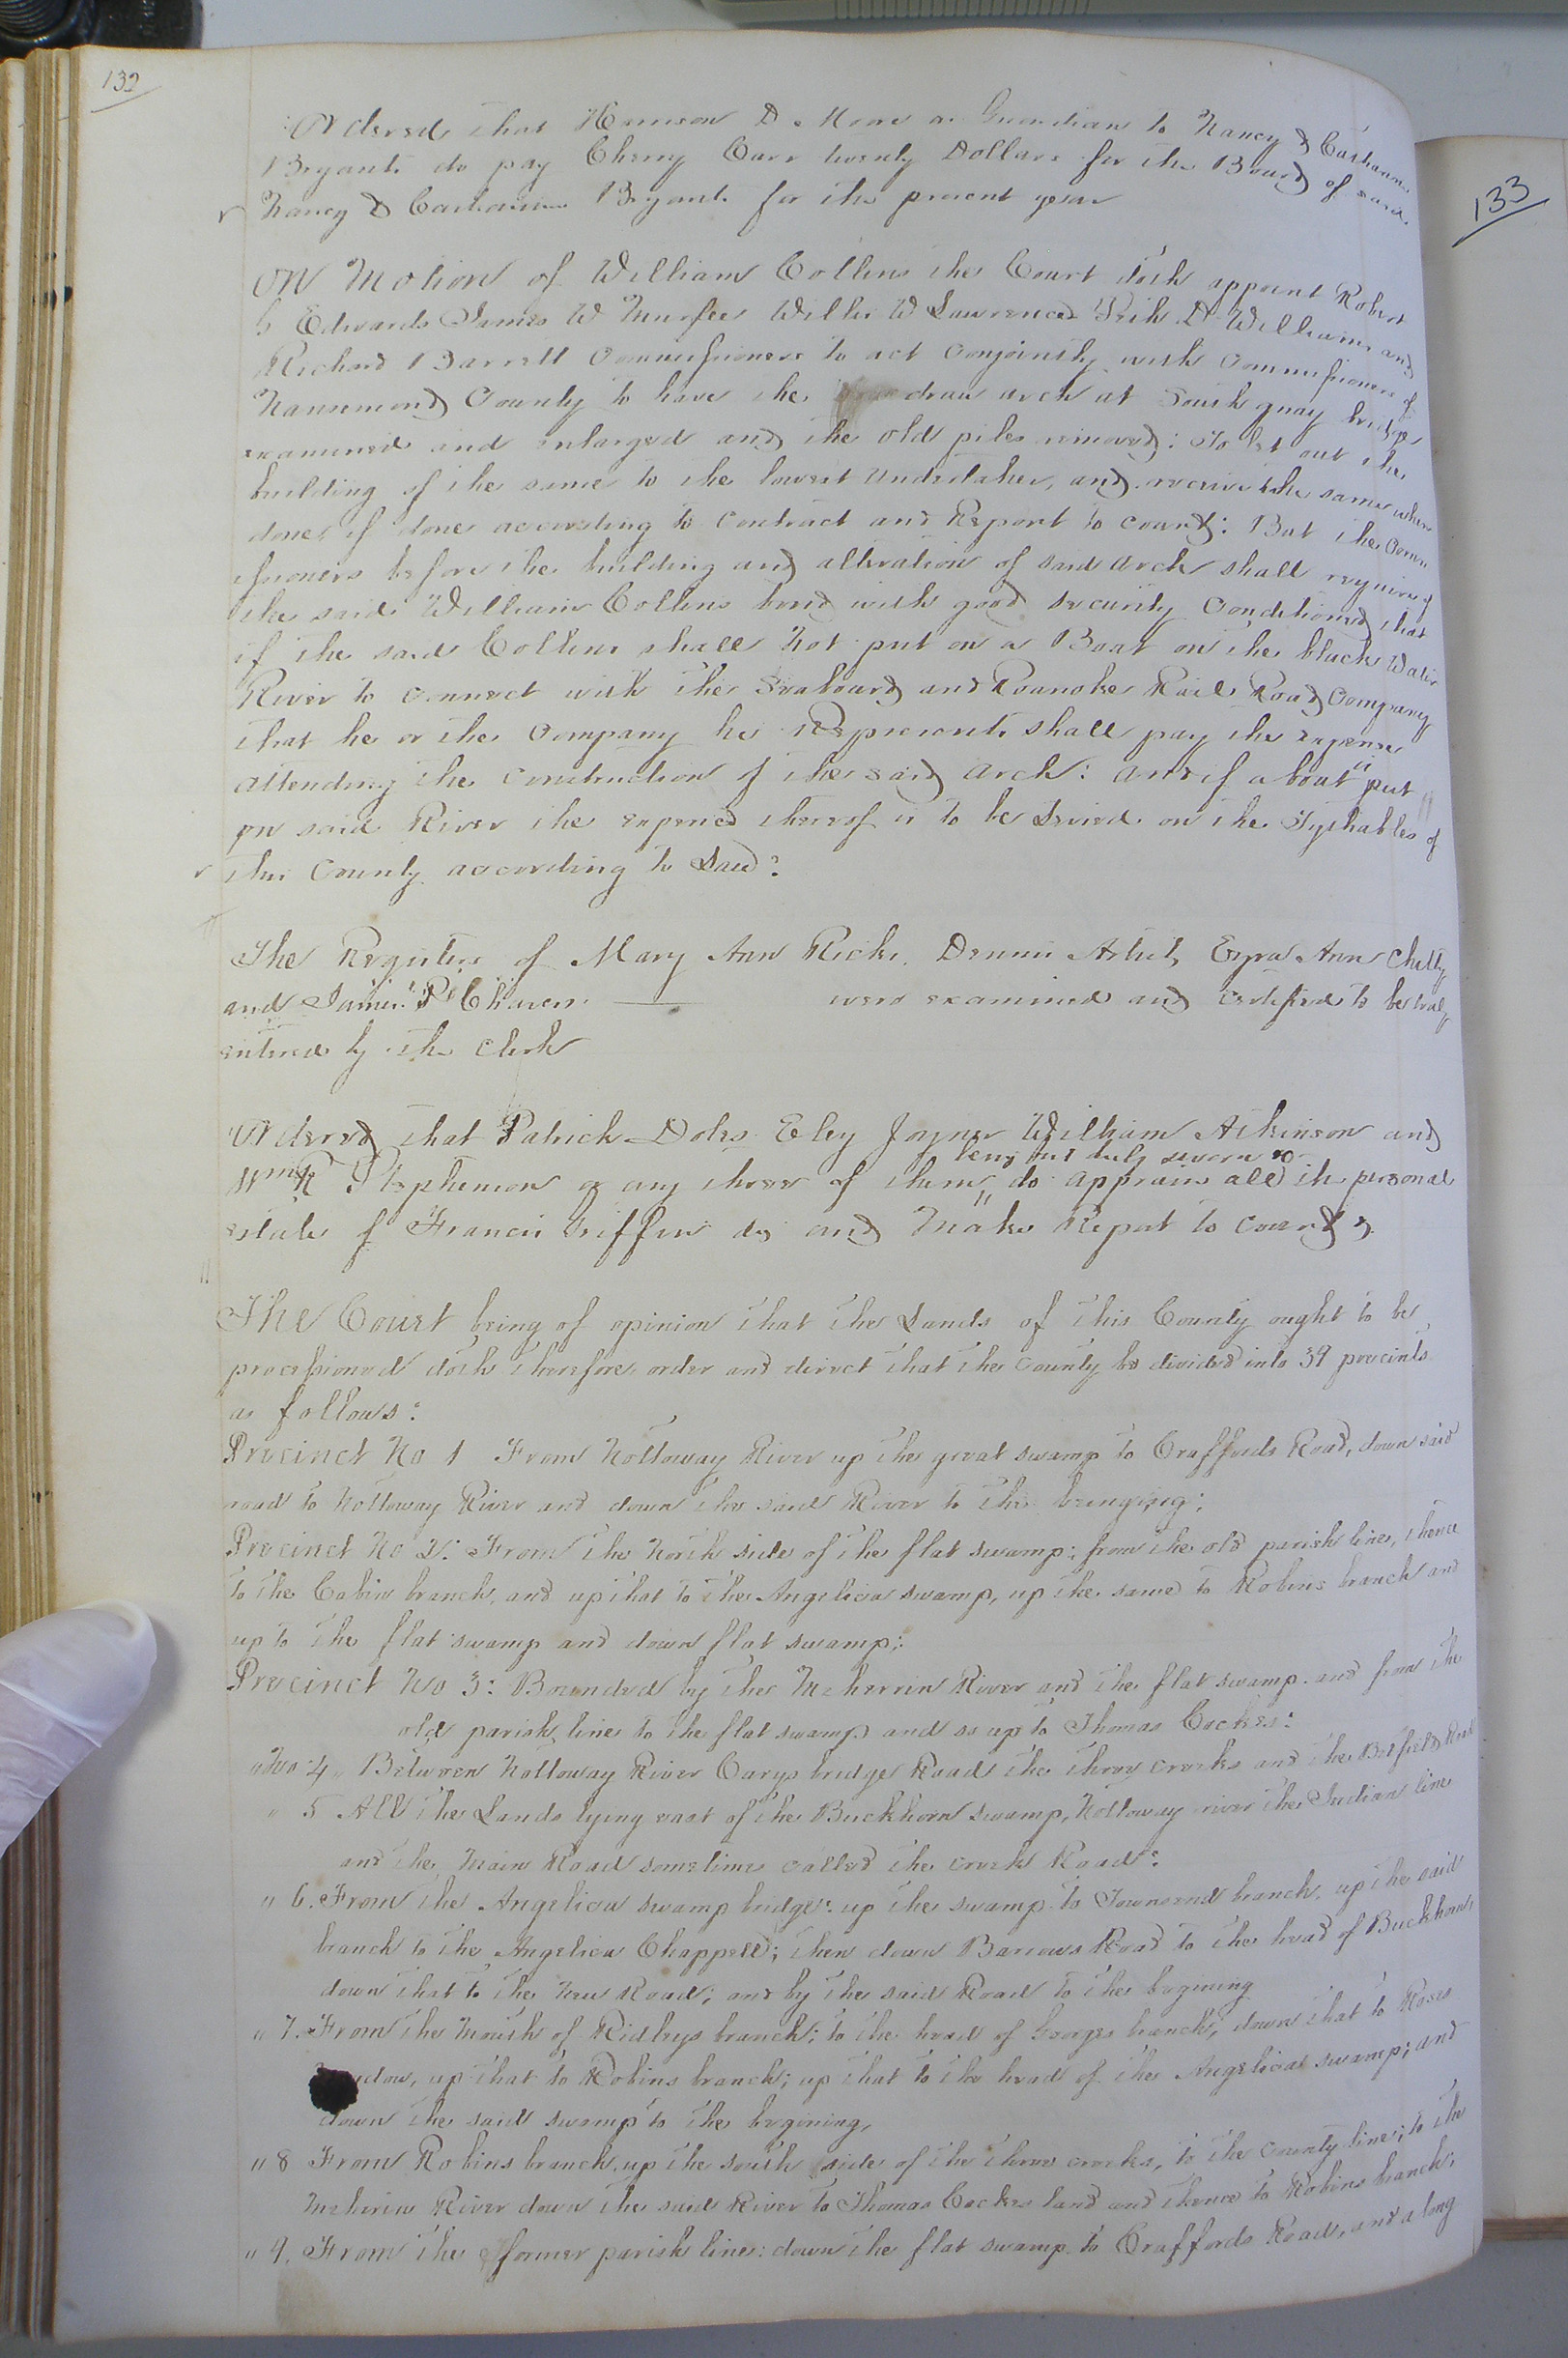 132
133
Ordered that Harrison D. Moore as Guardian to Nancy & Catharine
Bryant do pay Cherry Carr twenty Dollars for the Board of said
Nancy & Catharine Bryant for the present year
ON Motion of William Collins the Court doth appoint Robert
Edwards James W Murfee Willis W Lawrence D Williams and
Richard Barrett Commissioners to act conjointly with Commissioners of
Nansemond County to have the draw arch at South quay bridge
examined and enlarged and the old piles removed: To let out the
building of the same to the lowest undertaker, and receive the same when
done, if done according to Contract and Report to court: But the Comm
issioners before the building and alteration of said Arch shall require of
the said William Collins bond with good security Conditioned that
if the said Collins shall Not put on a Boat on the black Water
River to connect with the Seaboard and Roanoke Rail Road Company
that he or the Company he Represents shall pay the expense
attending the Construction of the said Arch: and if a boat is put
on said River the expence thereof is to be Levied on the Tythables of
this County according to Law:
The Registers of Mary Ann Ricks, Dennis Artist, Ann Chitty
and James Chavers were examined and certified to be truly
entered by the Clerk
Ordered that Patrick Doles Eley Joyner William Atkinson and
being first duly sworn
Wm R Stephenson or any three of them, do appraise all the personal
estate of Francis Griffin dec and Make Report to Court
The Court being of opinion that the Lands of this County ought to be
processioned doth therefore order and direct that the County be divided into 39 precincts
as follows:
Precinct No 1 From Nottoway River up the great swamp to Craffords Road, down said
road to Nottoway River and down the said River to the beinging;
Precinct No 2: From the North side of the flat swamp; from the old parish line, thence
to the Cabin branch, and up that to the Angelica swamp, up the same to Robins branch and
up to the flat swamp and down flat swamp;
Precinct No 3: Bounded by the Meherrin River and the flat swamp and from the
old parish line to the flat swamp and so up to Thomas Cockes:
" No 4 " Between Nottoway River Carys bridge Road the three creeks and the Belfield Road
" 5 All the Lands lying east of the Buckhorn swamp, Nottoway river the Indian line
and the Main Road sometimes called the creek Road:
" 6. From the Angelica swamp bridge: up the swamp to Townsend branch, up the said
branch to the Angelica Chappell; then down Barrows Road to the head of Buckhorn,
down that to the New Road; and by the said Road to the begining
" 7. From the Mouth of Ridleys branch; to the head of Georges branch, down that to Roses
up that to Robins branch; up that to the head of the Angelica swamp; and
down the said swamp to the begining,
" 8 From Robins branch up the south side of the three creeks, to the County line; to the
Meherrin River down the said River to Thomas Cockes land and thence to Robins branch;
" 9. From the former parish line: down the flat swamp to Craffords Road, and along